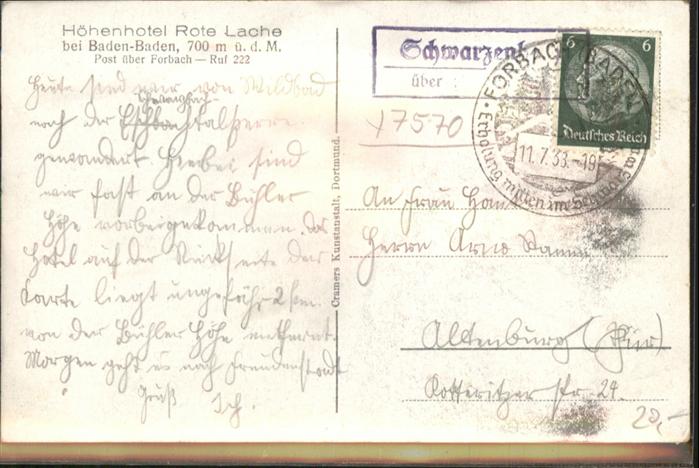 Höhenhotel Rote Lache
bei Baden-Baden, 700 m ü. d. M.
Post über Forbach — Ruf 222
Heute sind wir von Wildbad
nach der Talsperre
gewandert. Hierbei sind
wir fast an der Bühler
Höhe vorbergekommen. Das
Hotel auf der Rückseite der
Karte liegt ungefähr 2 km
von der Bühler Höhe entfernt.
Morgen geht es nach Freudenstadt
Gruß Ich.
Cramers Kunstanstalt, Dortmund.
über
17570
FORBACH (BADEN)
Erholung mitten im
11. 7. 38. -19
6 6
Deutsches Reich
An Frau
Herrn Arno
Altenburg (Thür)
Kotteritzer Str. 24.
20,-